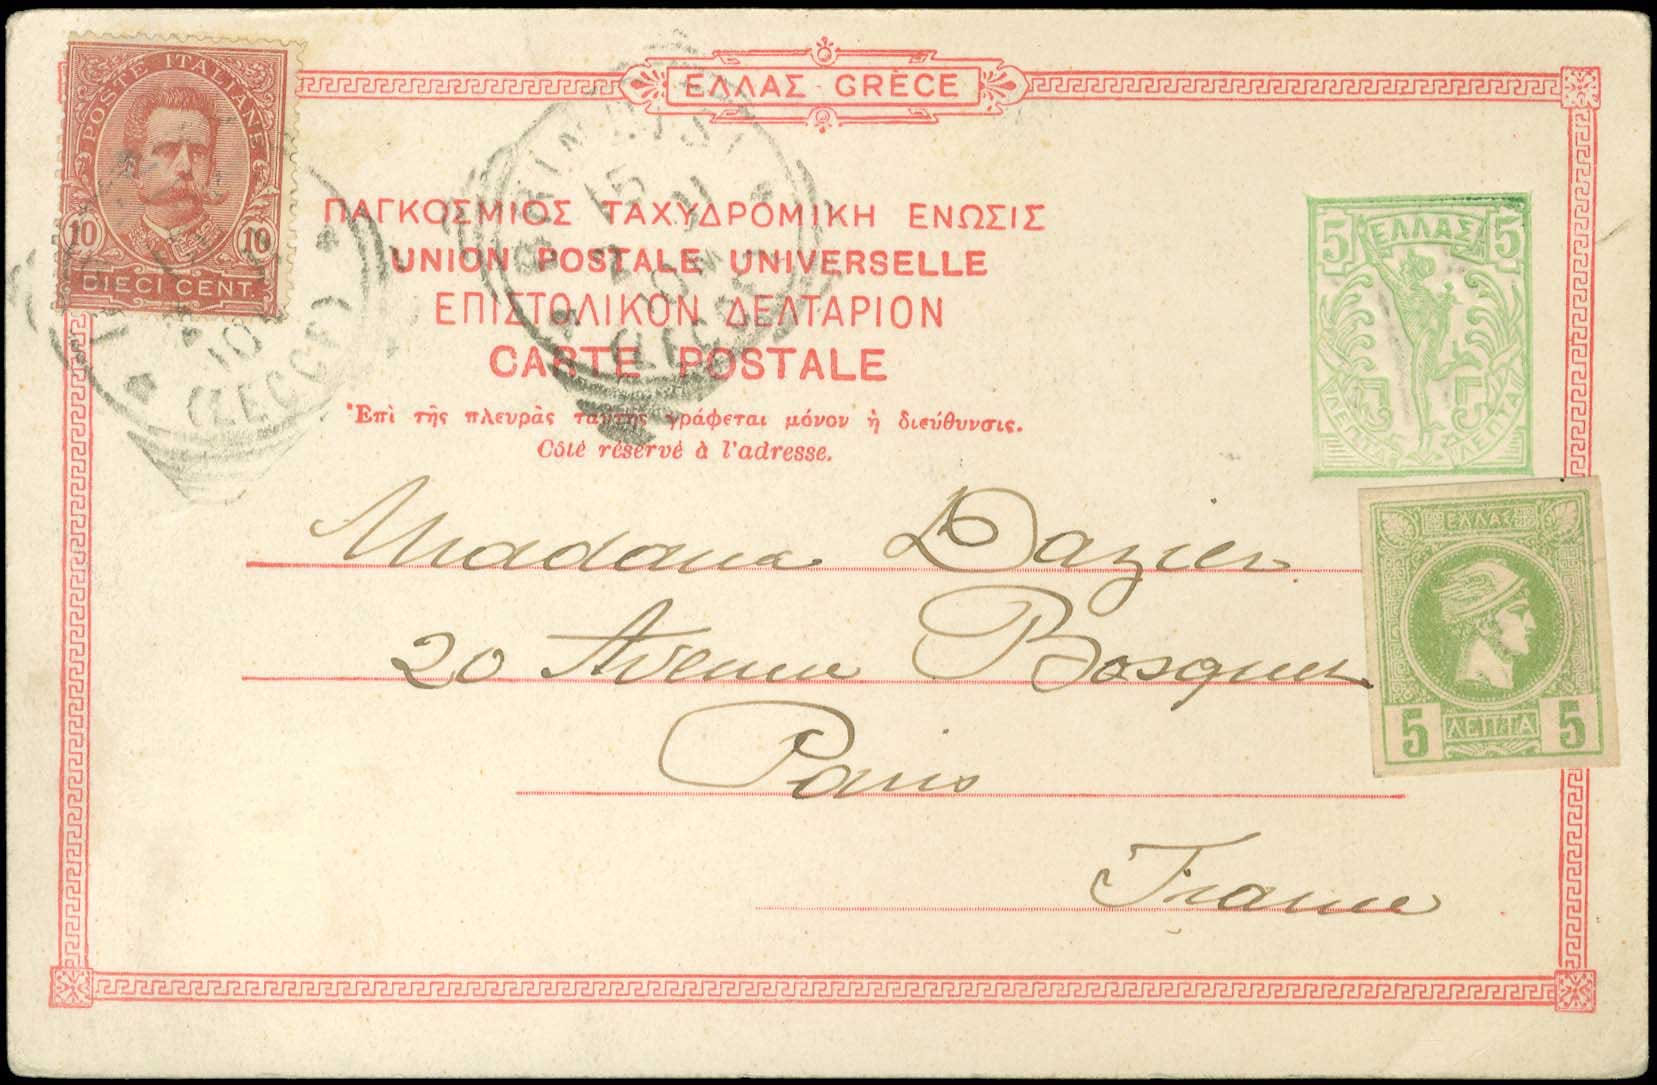 POSTE ITALIANE
10 10
DIECI CENT.
ΕΛΛΑΣ GRÈCE
ΠΑΓΚΟΣΜΙΟΣ ΤΑΧΥΔΡΟΜΙΚΗ ΕΝΩΣΙΣ
UNION POSTALE UNIVERSELLE
ΕΠΙΣΤΟΛΙΚΟΝ ΔΕΛΤΑΡΙΟΝ
CARTE POSTALE
Ἐπὶ τῆς πλευρᾶς ταύτης γράφεται μόνον ἡ διεύθυνσις.
Côté réservé à l'adresse.
BRINDISI
15
(LECCE)
10
(LECCE)
5 ΕΛΛΑΣ 5
ΛΕΠΤΑ ΛΕΠΤΑ
ΕΛΛΑΣ
5 ΛΕΠΤΑ 5
Madame Dazier
20 Avenue Bosquet
Paris
France